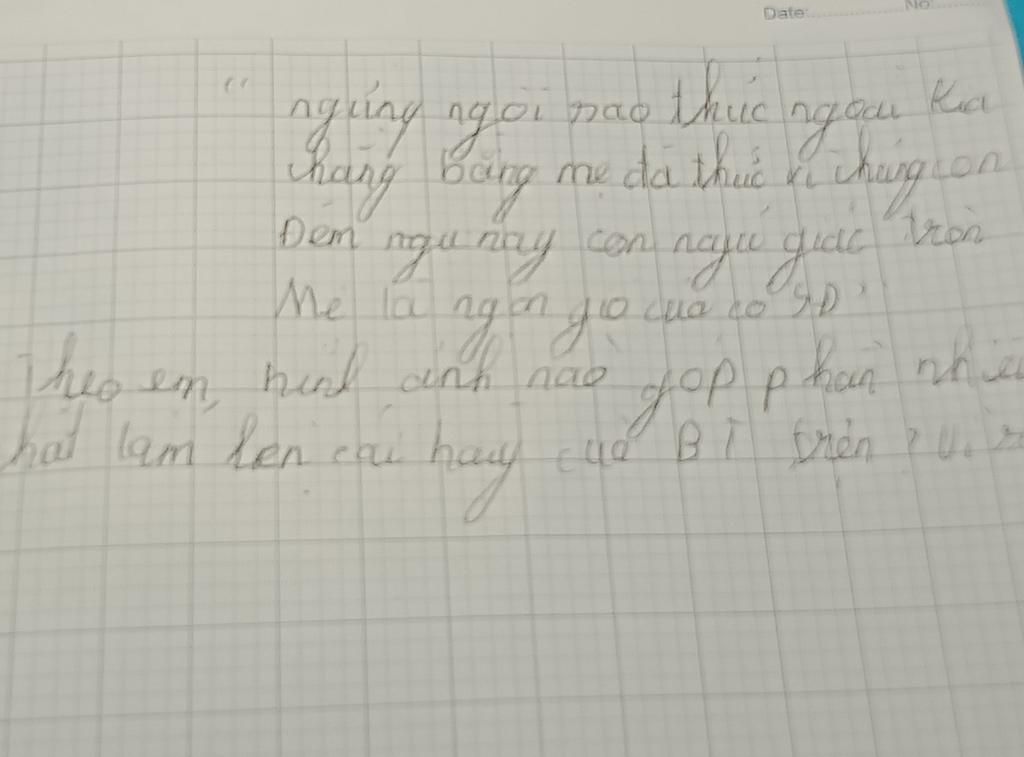 Date: No:
" ngưng ngôi nao thưc ngoai kia
chẳng bằng mẹ đã thưc vi chúng con
Đêm ngu nay con ngủ giấc tròn
Mẹ là ngọn gió của co SĐ"
Theo em, hinh ảnh nào góp phần nhiều
lam lên cái hay của BT trên ?